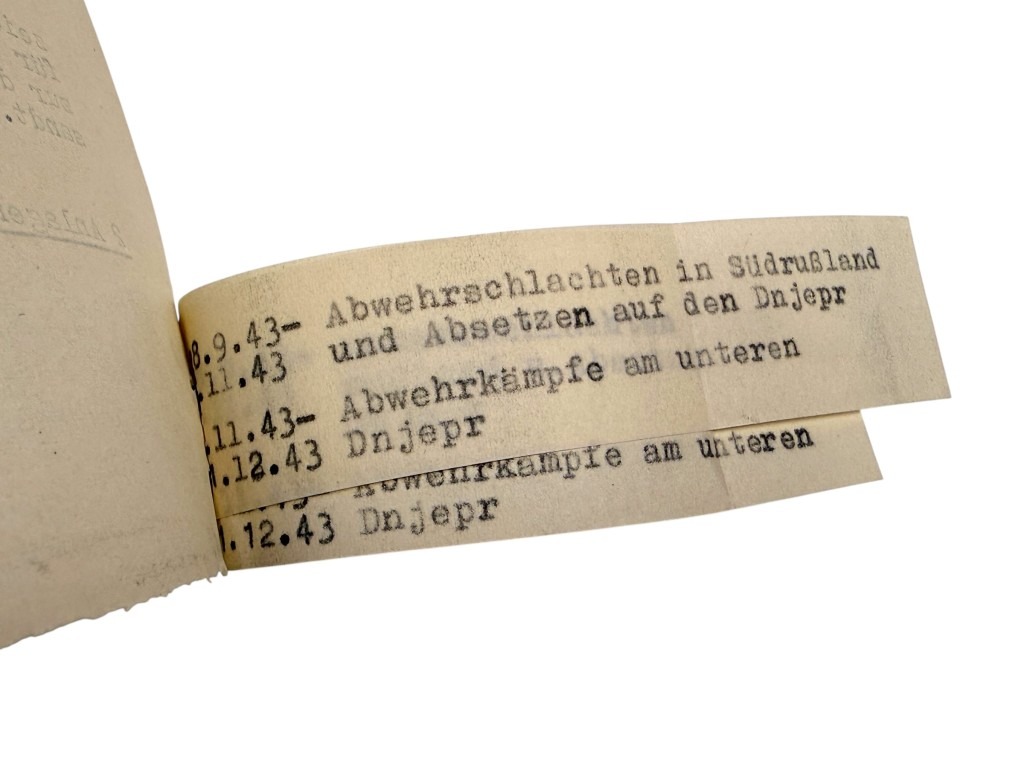 8.9.43- Abwehrschlachten in Südrußland
.11.43 und Absetzen auf den Dnjepr
.11.43- Abwehrkämpfe am unteren
.12.43 Dnjepr
Abwehrkämpfe am unteren
.12.43 Dnjepr
sandt.
2 Anlagen